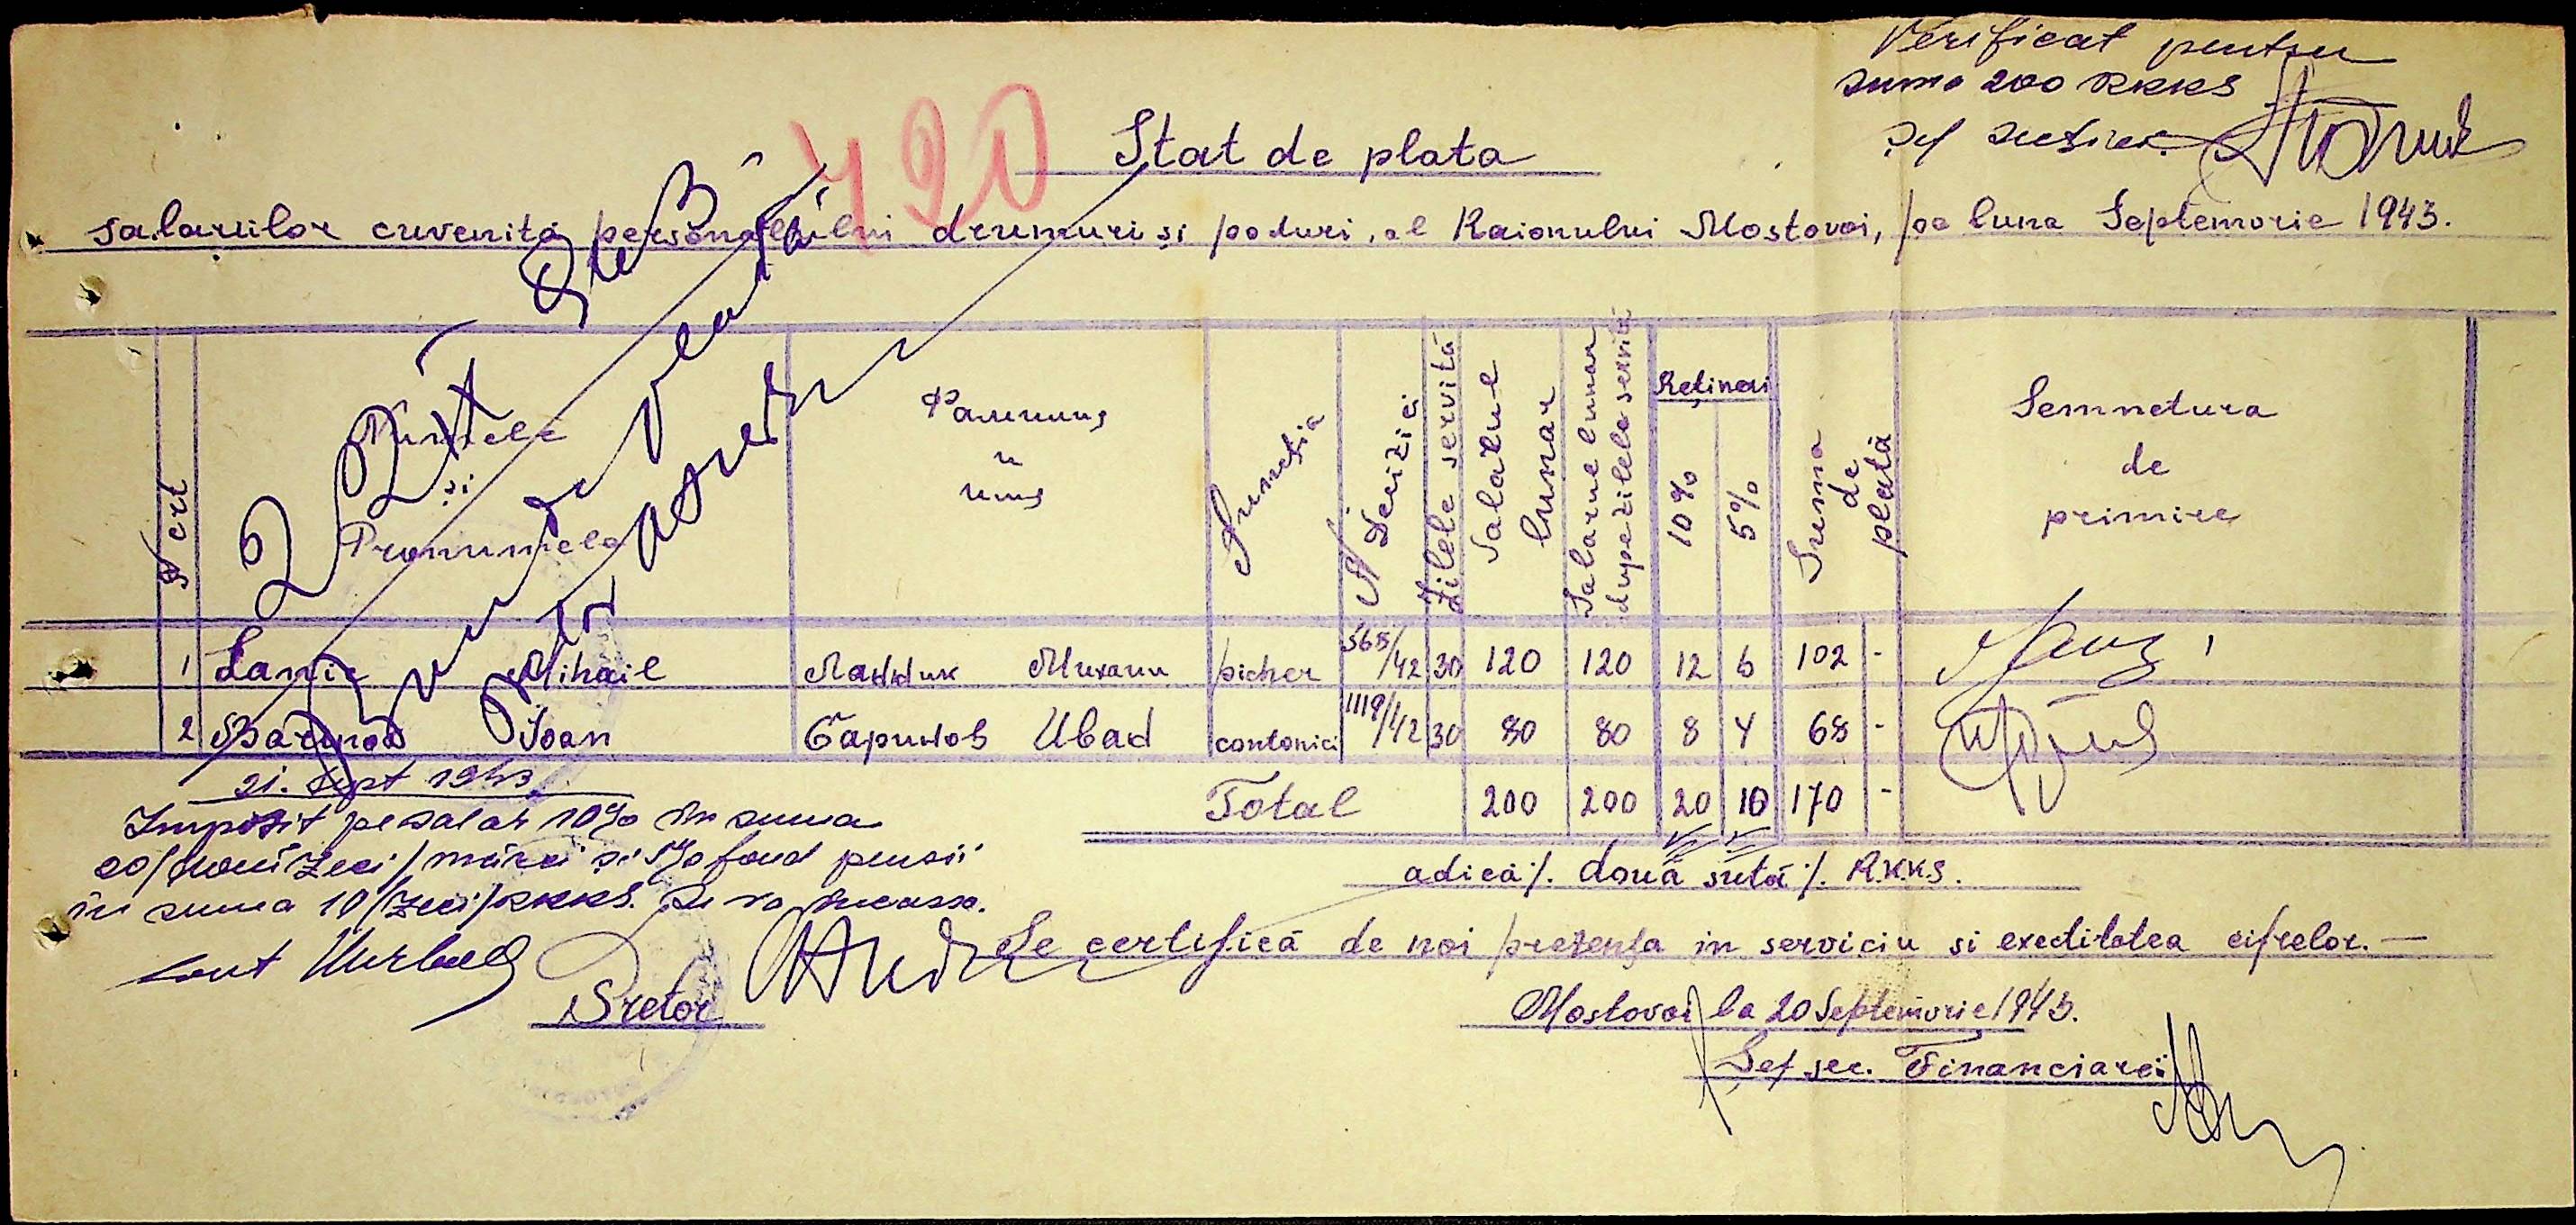 Verificat pentru
suma 200 RKKS
Șef secției
420
Stat de plata
salariilor cuvenită personalului drumuri și poduri, al Raionului Mostovoi, pe luna Septemvrie 1943.
N crt
Numele
și
Pronumele
Фамилия
и
имя
Funcția
N Deciziei
Zilele servită
Salariul lunar
Salarul lunar
dupe zilele servită
Rețineri
10%
5%
Suma
de
plată
Semnetura
de
primire
1 Mihail Михаил picher 565/42 30 120 120 12 6 102 -
2 Barinov Ioan Баринов Иван contonici 1118/42 30 80 80 8 4 68 -
Total 200 200 20 10 170 -
21. Sept 1943.
Impozit pe salar 10% în suma
20/două zeci/ mărci și 5% fond pensii
în suma 10/zeci/RKKS. Se va încassa.
adică /. două sută /. R.K.K.S.
Se certifică de noi prezența in serviciu si exectitatea cifrelor. —
Pretor
Mostovoi la 20 Septemvrie 1943.
Șef sec. Financiarei